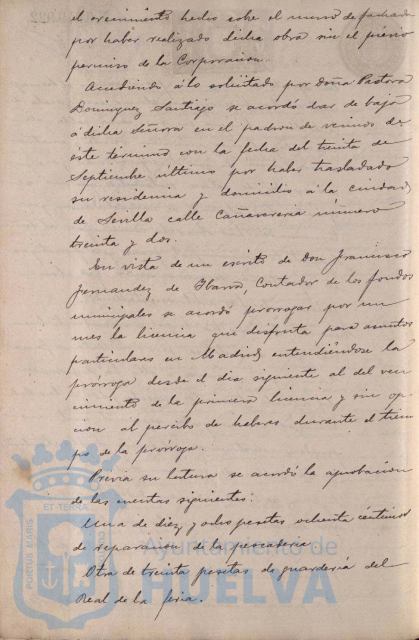 el crecimiento hecho sobre el muro de fachada
por haber realizado dicha obra sin el previo
permiso de la Corporacion.
Accediendo á lo solicitado por Doña Pastora
Dominguez Santiago se acordó dar de baja
á dicha Señora en el padron de vecinos de
éste término con la fecha del treinta de
Septiembre último por haber trasladado
su residencia y domicilio á la ciudad
de Sevilla calle Cañavereria número
treinta y dos.
En vista de un escrito de Don Francisco
Fernandez de Ibarra, Contador de los fondos
municipales se acordó prorrogar por un
mes la licencia que disfruta para asuntos
particulares en Madrid entendiéndose la
prórroga desde el dia siguiente al del ven
cimiento de la primera licencia y sin op
cion al percibo de haberes durante el tiem
po de la prórroga.
Prévia su lectura se acordó la aprobacion
de las cuentas siguientes:
Una de diez y ocho pesetas ochenta céntimos
de reparacion de la pescaderia
Otra de treinta pesetas de guarderia del
Real de la feria.
PORTUS MARIS
ET TERRÆ
Ayuntamiento de
HUELVA